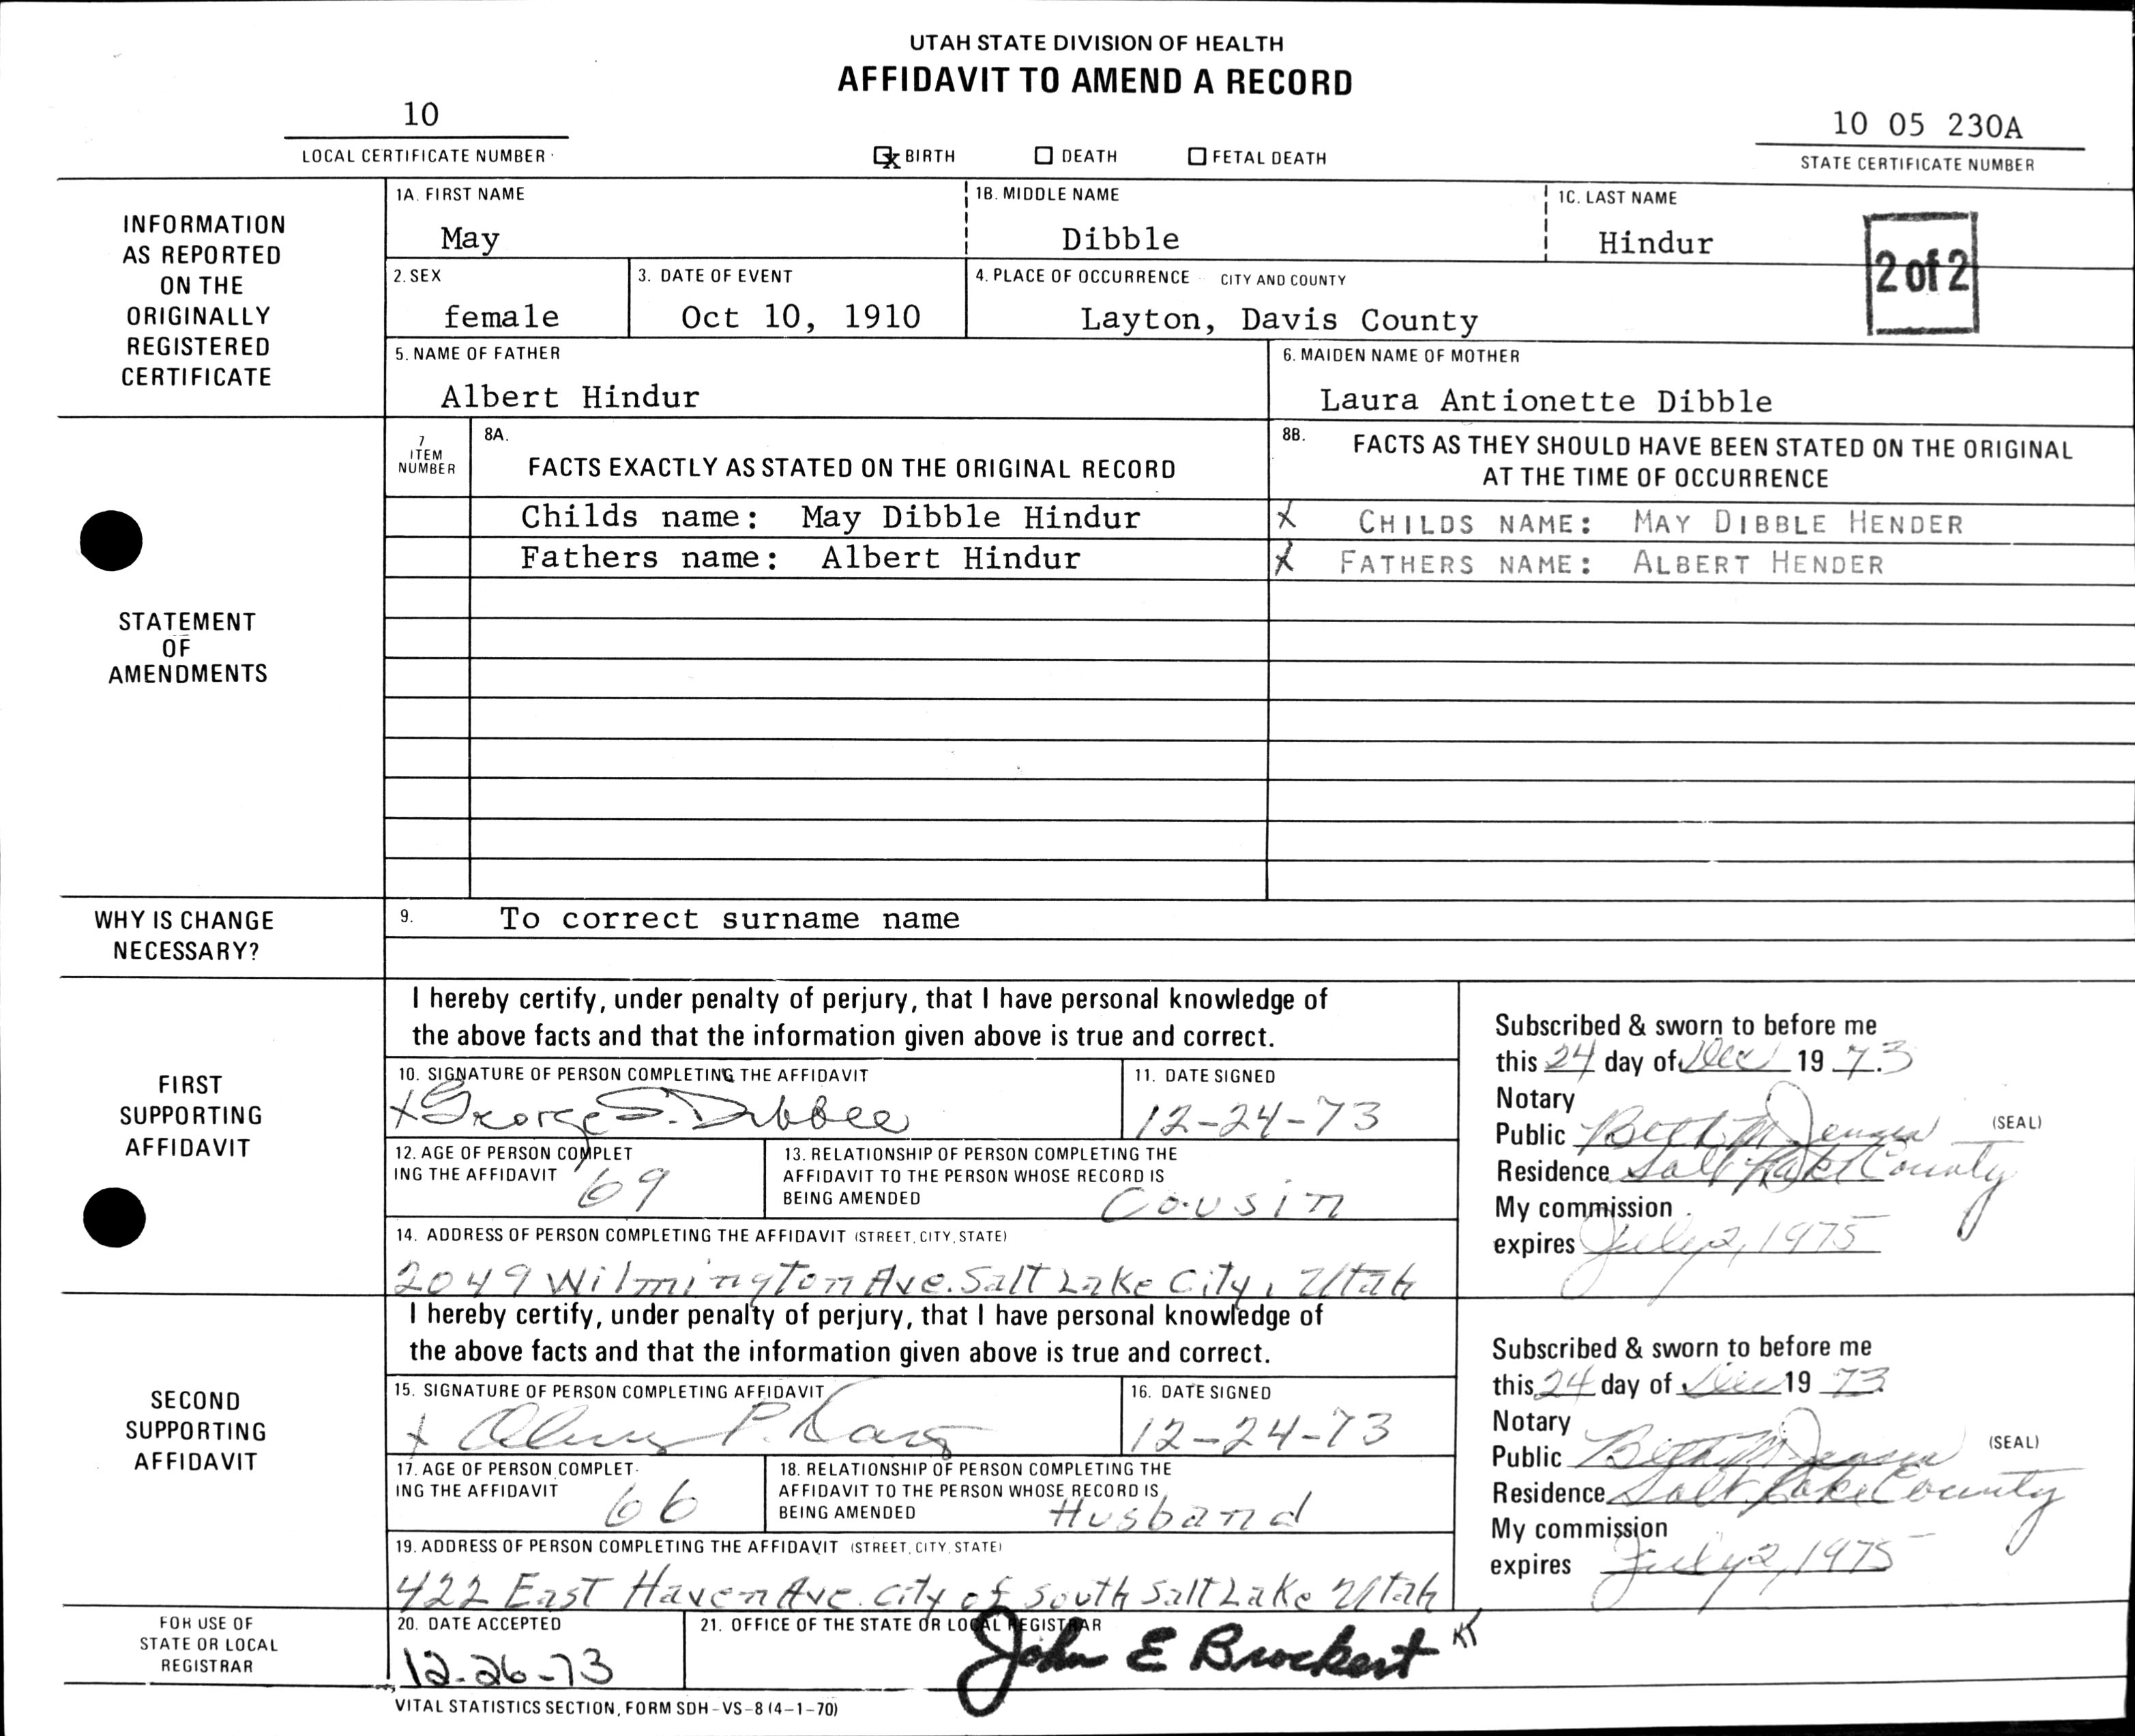 UTAH STATE DIVISION OF HEALTH
AFFIDAVIT TO AMEND A RECORD
10
LOCAL CERTIFICATE NUMBER
x BIRTH DEATH FETAL DEATH
10 05 230A
STATE CERTIFICATE NUMBER
INFORMATION
AS REPORTED
ON THE
ORIGINALLY
REGISTERED
CERTIFICATE
1A. FIRST NAME
May
1B. MIDDLE NAME
Dibble
1C. LAST NAME
Hindur
2 of 2
2. SEX
female
3. DATE OF EVENT
Oct 10, 1910
4. PLACE OF OCCURRENCE CITY AND COUNTY
Layton, Davis County
5. NAME OF FATHER
Albert Hindur
6. MAIDEN NAME OF MOTHER
Laura Antionette Dibble
STATEMENT
OF
AMENDMENTS
7
ITEM
NUMBER
8A.
FACTS EXACTLY AS STATED ON THE ORIGINAL RECORD
8B.
FACTS AS THEY SHOULD HAVE BEEN STATED ON THE ORIGINAL
AT THE TIME OF OCCURRENCE
Childs name: May Dibble Hindur
X CHILDS NAME: MAY DIBBLE HENDER
Fathers name: Albert Hindur
X FATHERS NAME: ALBERT HENDER
WHY IS CHANGE
NECESSARY?
9. To correct surname name
FIRST
SUPPORTING
AFFIDAVIT
I hereby certify, under penalty of perjury, that I have personal knowledge of
the above facts and that the information given above is true and correct.
10. SIGNATURE OF PERSON COMPLETING THE AFFIDAVIT
X George S. Dibblee
11. DATE SIGNED
12-24-73
12. AGE OF PERSON COMPLET
ING THE AFFIDAVIT 69
13. RELATIONSHIP OF PERSON COMPLETING THE
AFFIDAVIT TO THE PERSON WHOSE RECORD IS
BEING AMENDED Cousin
14. ADDRESS OF PERSON COMPLETING THE AFFIDAVIT (STREET, CITY, STATE)
2049 Wilmington Ave. Salt Lake City, Utah
Subscribed & sworn to before me
this 24 day of Dec 19 73
Notary
Public Beth M Jensen (SEAL)
Residence Salt Lake County
My commission
expires July 2, 1975
SECOND
SUPPORTING
AFFIDAVIT
I hereby certify, under penalty of perjury, that I have personal knowledge of
the above facts and that the information given above is true and correct.
15. SIGNATURE OF PERSON COMPLETING AFFIDAVIT
X P.
16. DATE SIGNED
12-24-73
17. AGE OF PERSON COMPLET-
ING THE AFFIDAVIT 66
18. RELATIONSHIP OF PERSON COMPLETING THE
AFFIDAVIT TO THE PERSON WHOSE RECORD IS
BEING AMENDED Husband
19. ADDRESS OF PERSON COMPLETING THE AFFIDAVIT (STREET, CITY, STATE)
422 East Haven Ave. City of South Salt Lake Utah
Subscribed & sworn to before me
this 24 day of Dec 19 73
Notary
Public Beth M Jensen (SEAL)
Residence Salt Lake County
My commission
expires July 2, 1975
FOR USE OF
STATE OR LOCAL
REGISTRAR
20. DATE ACCEPTED
12-26-73
21. OFFICE OF THE STATE OR LOCAL REGISTRAR
John E Brockert KT
VITAL STATISTICS SECTION, FORM SDH-VS-8 (4-1-70)